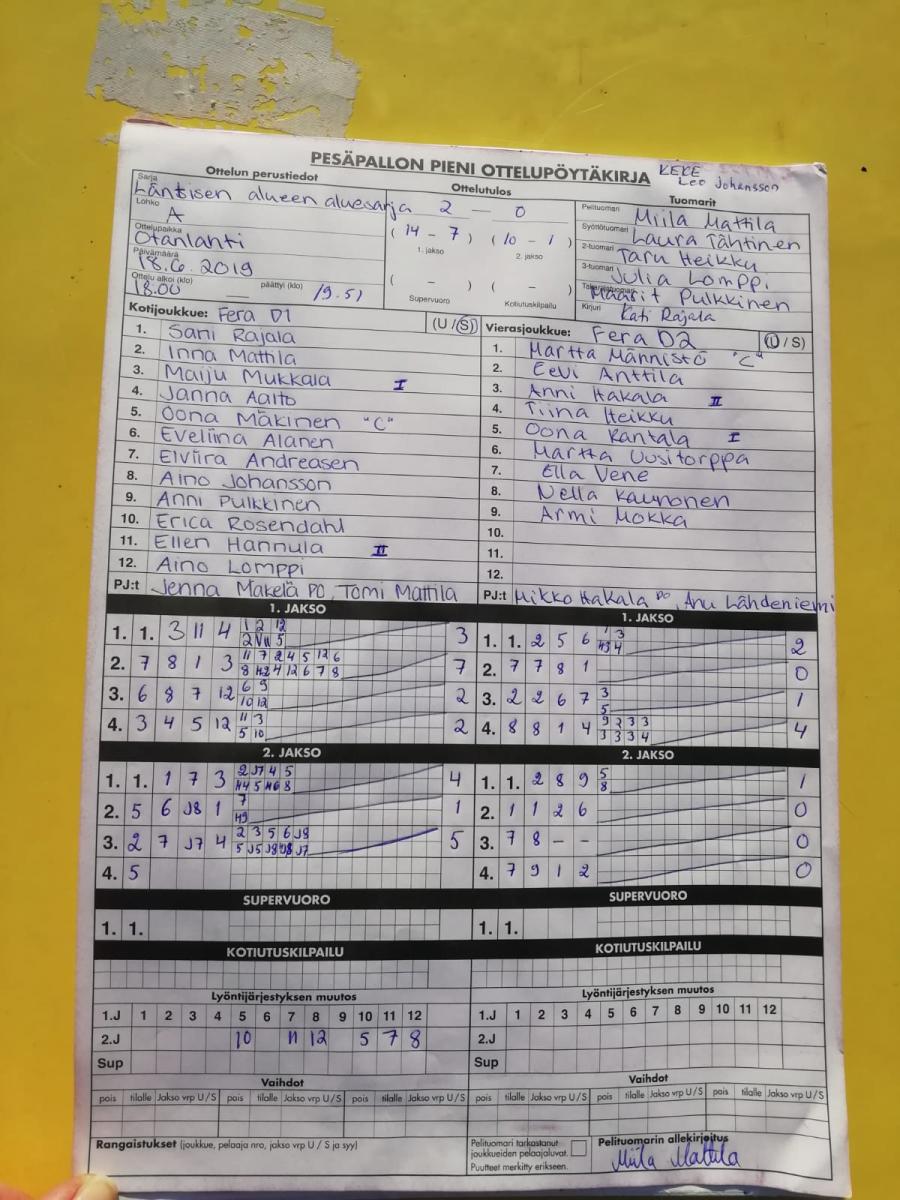 PESÄPALLON PIENI OTTELUPÖYTÄKIRJA KEKE
Leo Johansson
Ottelun perustiedot Ottelutulos Tuomarit
Sarja Läntisen alueen aluesarja
2 — 0
Lohko A
(14 - 7) (10 - 1)
1. jakso 2. jakso
Ottelupaikka Otanlahti
Päivämäärä 18.6.2019
( - ) ( - )
Ottelu alkoi (klo) 18.00 päättyi (klo) 19.51
Supervuoro Kotiutuskilpailu
Pelituomari Miila Mattila
Syöttötuomari Laura Tähtinen
2-tuomari Taru Heikku
3-tuomari Julia Lomppi
Takarajatuomari Maarit Pulkkinen
Kirjuri Kati Rajala
Kotijoukkue: Fera D1 (U / S)
1. Sani Rajala
2. Inna Mattila
3. Maiju Mukkala I
4. Janna Aalto
5. Oona Mäkinen "C"
6. Eveliina Alanen
7. Elviira Andreasen
8. Aino Johansson
9. Anni Pulkkinen
10. Erica Rosendahl
11. Ellen Hannula II
12. Aino Lomppi
PJ:t Jenna Mäkelä PO, Tomi Mattila
Vierasjoukkue: Fera D2 (U / S)
1. Martta Männistö "C"
2. Eevi Anttila
3. Anni Hakala II
4. Tiina Heikku
5. Oona Rantala I
6. Martta Uusitorppa
7. Ella Vene
8. Nella Kaunonen
9. Armi Mokka
10.
11.
12.
PJ:t Mikko Hakala PO, Anu Lähdeniemi
1. JAKSO
1. 1. 3 11 4 1 2 12 3
2. 7 8 1 3 11 7 2 4 5 12 6 7
8 4 12 6 7 8
3. 6 8 7 12 6 9 2
10 12
4. 3 4 5 12 11 3 2
5 10
1. JAKSO
1. 1. 2 5 6 1 3 2
2. 7 7 8 1 0
3. 2 2 6 7 3 1
5
4. 8 8 1 4 9 2 3 3 4
3 3 3 4
2. JAKSO
1. 1. 1 7 3 2 J7 4 5 4
2. 5 6 J8 1 7 1
3. 2 7 J7 4 2 3 5 6 J8 5
4. 5
2. JAKSO
1. 1. 2 8 9 5 1
8
2. 1 1 2 6 0
3. 7 8 - - 0
4. 7 9 1 2 0
SUPERVUORO SUPERVUORO
1. 1. 1. 1.
KOTIUTUSKILPAILU KOTIUTUSKILPAILU
Lyöntijärjestyksen muutos Lyöntijärjestyksen muutos
1.J 1 2 3 4 5 6 7 8 9 10 11 12 1.J 1 2 3 4 5 6 7 8 9 10 11 12
2.J 10 11 12 5 7 8 2.J
Sup Sup
Vaihdot Vaihdot
pois tilalle Jakso vrp U/S pois tilalle Jakso vrp U/S pois tilalle Jakso vrp U/S pois tilalle Jakso vrp U/S pois tilalle Jakso vrp U/S pois tilalle Jakso vrp U/S
Rangaistukset (joukkue, pelaaja nro, jakso vrp U / S ja syy)
Pelituomari tarkastanut
joukkueiden pelaajaluvat.
Puutteet merkitty erikseen.
Pelituomarin allekirjoitus
Miila Mattila